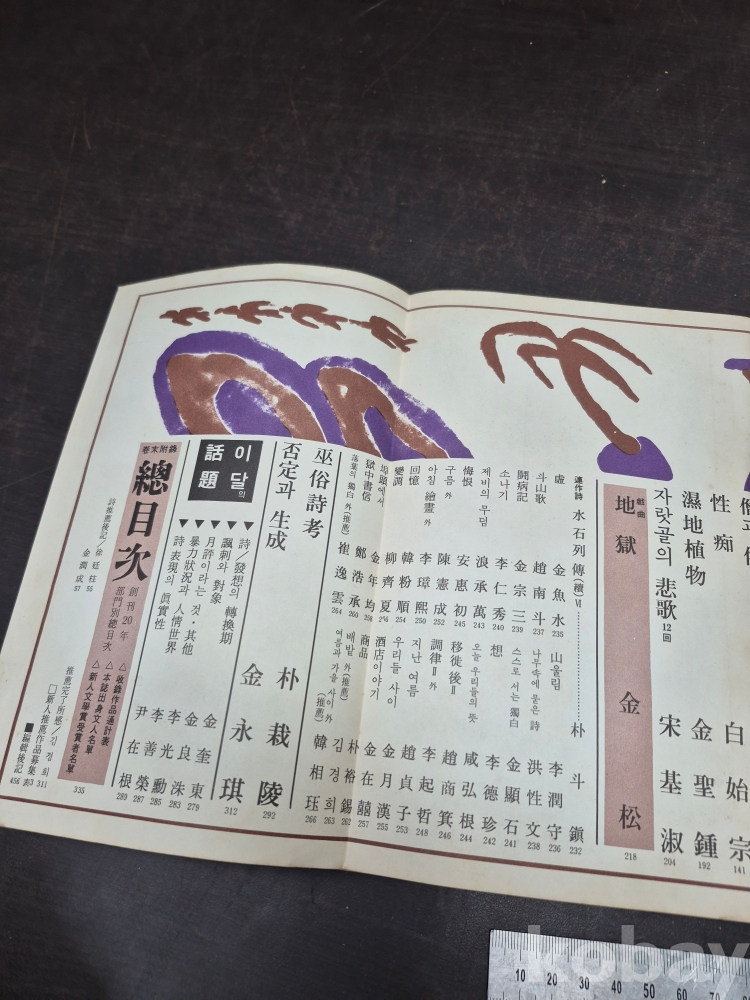 性痴 白始宗 141
濕地植物 金聖鍾 192
자랏골의 悲歌 12回 宋基淑 204
戱曲 地獄 金松 218
連作詩 水石列傳(續)Ⅵ 朴斗鎭 232
虛 金魚水 235
山울림 李潤守 236
斗山歌 趙南斗 237
나무속에 묻은 詩 洪性文 238
鬪病記 金宗三 239
스스로 서는 獨白 金顯石 241
소나기 李仁秀 240
想 李德珍 242
제비의 무덤 浪承萬 243
오늘 우리들의 뜻 咸弘根 244
悔恨 安惠初 245
移徙後Ⅱ 趙商箕 246
구름 外 陳憲成 252
調律Ⅱ外 李起哲 248
아침 繪畫 外 李璟熙 250
지난 여름 趙貞子 253
回憶 韓粉順 254
우리들 사이 金月漢 255
變調 柳齊夏
酒店이야기 金在囍 257
埠頭에서 金年均 258
商品 朴裕錫 262
獄中書信 鄭浩承 260
배밭 外(推薦) 김경희 263
落葉의 獨白 外(推薦) 崔逸雲 264
여름과 가을 사이 外(推薦) 韓相珏 266
巫俗詩考 朴栽陵 292
否定과 生成 金永琪 312
이달의 話題
▼詩/發想의 轉換期 金奎東 279
▼諷刺와 對象 金良洙 283
▼月評이라는 것・其他 李光勳 285
▼暴力狀況과 人情世界 李善榮 287
▼詩表現의 眞實性 尹在根 289
卷末附錄
總目次
創刊20年
部門別總目次
△收錄作品通計表
△本誌出身文人名單
△新人文學賞受賞者名單
335
詩推薦後記/徐廷柱 55
金潤成 57
推薦完了所感/김경희 311
□新人推薦作品募集 表3
■編輯後記 456
10 20 30 40 50 60 70
kobay